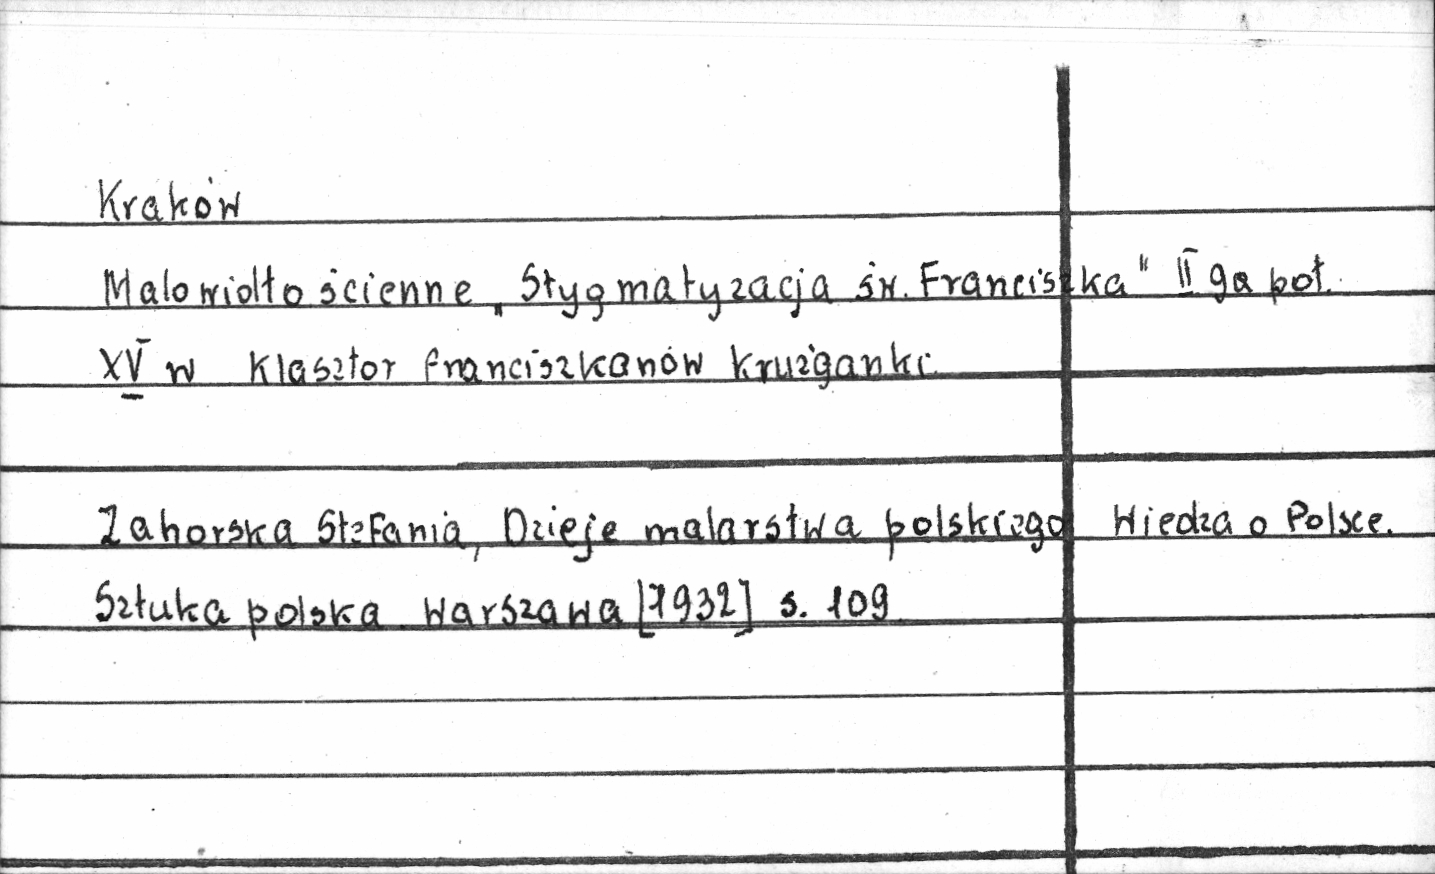 Kraków
Malowidło ścienne „Stygmatyzacja św. Franciszka" II ga poł.
XV w Klasztor franciszkanów krużganki.
Zahorska Stefania, Dzieje malarstwa polskiego Wiedza o Polsce.
Sztuka polska. Warszawa [1932] s. 109